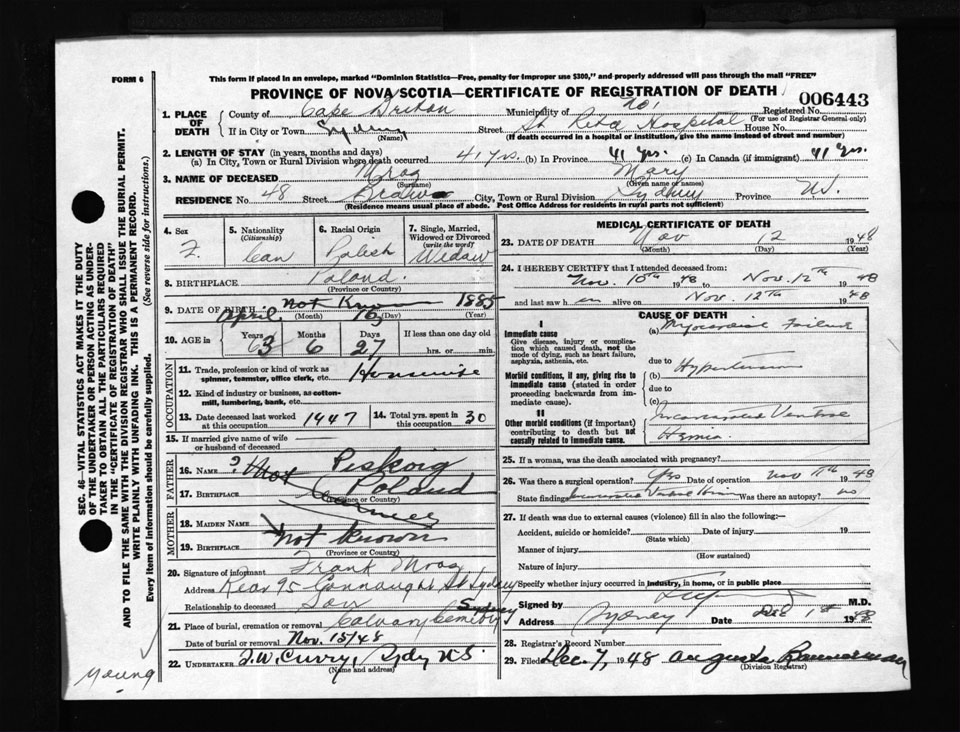 FORM 6
This form if placed in an envelope, marked "Dominion Statistics—Free, penalty for improper use $300," and properly addressed will pass through the mail "FREE"
PROVINCE OF NOVA SCOTIA—CERTIFICATE OF REGISTRATION OF DEATH
006443
1. PLACE OF DEATH
County of Cape Breton Municipality of Registered No.
(For use of Registrar General only)
If in City or Town Sydney Street St Rita Hospital House No.
(Name) (If death occurred in a hospital or institution, give the name instead of street and number)
2. LENGTH OF STAY (in years, months and days)
(a) In City, Town or Rural Division where death occurred 41 yrs. (b) In Province 41 yrs. (c) In Canada (if immigrant) 41 yrs
3. NAME OF DECEASED Mrog Mary
(Surname) (Given name or names)
RESIDENCE No. 48 Street City, Town or Rural Division Sydney Province N.S.
(Residence means usual place of abode. Post Office Address for residents in rural parts not sufficient)
4. Sex F.
5. Nationality (Citizenship) Can
6. Racial Origin Polish
7. Single, Married, Widowed or Divorced (write the word) Widow
8. BIRTHPLACE Poland.
(Province or Country)
9. DATE OF BIRTH Not Known April 16 1885
(Month) (Day) (Year)
10. AGE in Years 63 Months 6 Days 27 If less than one day old
hrs. or min.
OCCUPATION
11. Trade, profession or kind of work as spinner, teamster, office clerk, etc. Housewife
12. Kind of industry or business, as cotton-mill, lumbering, bank, etc.
13. Date deceased last worked at this occupation 1947
14. Total yrs. spent in this occupation 30
15. If married give name of wife or husband of deceased
FATHER
16. Name ? Not Piskorig
17. Birthplace Poland
(Province or Country)
MOTHER
18. Maiden Name
19. Birthplace Not Known
(Province or Country)
20. Signature of informant Frank Mrog
Address Rear 95 Connaught St Sydney
Relationship to deceased Son
21. Place of burial, cremation or removal Calvary Cemetery Sydney
Date of burial or removal Nov. 15/48
22. UNDERTAKER J.W. Curry, Sydy N.S.
(Name and address)
MEDICAL CERTIFICATE OF DEATH
23. DATE OF DEATH Nov 12 1948
(Month) (Day) (Year)
24. I HEREBY CERTIFY that I attended deceased from:
Nov. 10th 1948 to Nov. 12th 1948
and last saw her alive on Nov. 12th 1948
CAUSE OF DEATH
I
Immediate cause
Give disease, injury or complication which caused death, not the mode of dying, such as heart failure, asphyxia, asthenia, etc.
(a) Myocardial Failure
due to
Morbid conditions, if any, giving rise to immediate cause (stated in order proceeding backwards from immediate cause).
(b) Hypertension
due to
(c)
II
Other morbid conditions (if important) contributing to death but not causally related to immediate cause.
Incarcerated Ventral
Hernia.
25. If a woman, was the death associated with pregnancy?
26. Was there a surgical operation? Yes Date of operation Nov 11th 1948
State findings Incarcerated Ventral Hernia Was there an autopsy? no
27. If death was due to external causes (violence) fill in also the following:—
Accident, suicide or homicide? Date of injury 19
(State which)
Manner of injury
(How sustained)
Nature of injury
Specify whether injury occurred in industry, in home, or in public place
Signed by M.D.
Address Sydney Date Dec 1st 1948
28. Registrar's Record Number
29. Filed Dec. 7, 1948 Augusta Bannerman
(Division Registrar)
SEC. 46—VITAL STATISTICS ACT MAKES IT THE DUTY
OF THE UNDERTAKER OR PERSON ACTING AS UNDER-
TAKER TO OBTAIN ALL THE PARTICULARS REQUIRED
IN THE "CERTIFICATE OF REGISTRATION OF DEATH"
AND TO FILE THE SAME WITH THE DIVISION REGISTRAR WHO SHALL ISSUE THE BURIAL PERMIT.
WRITE PLAINLY WITH UNFADING INK. THIS IS A PERMANENT RECORD.
Every item of information should be carefully supplied. (See reverse side for instructions.)
Young